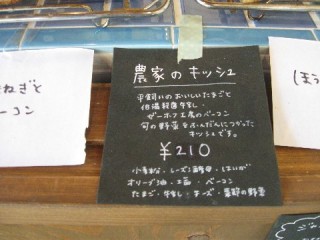 農家のキッシュ
平飼いのおいしいたまごと
低温殺菌牛乳
ゼーホフ工房のベーコン
旬の野菜をふんだんにつかった
キッシュです。
¥210
小麦粉・レーズン酵母・はいが
オリーブ油・豆乳・ベーコン
たまご・牛乳・チーズ・季節の野菜
ねぎと
ーコン
ほう